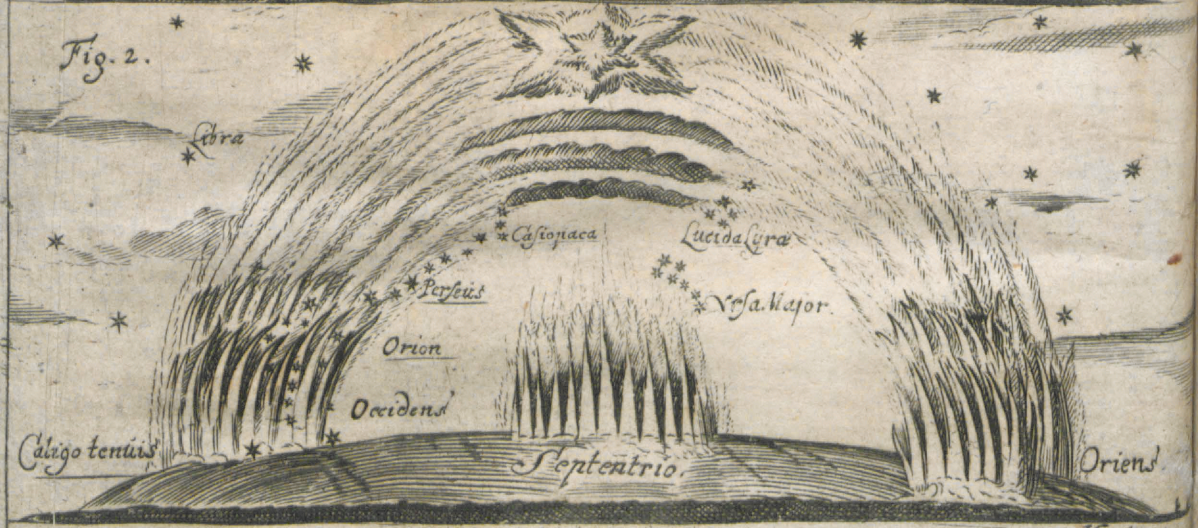 Fig. 2.
Libra
Casiopaea
Lucida Lyra
Perseus
Vrsa. Major.
Orion
Occidens
Caligo tenuis
Septentrio.
Oriens